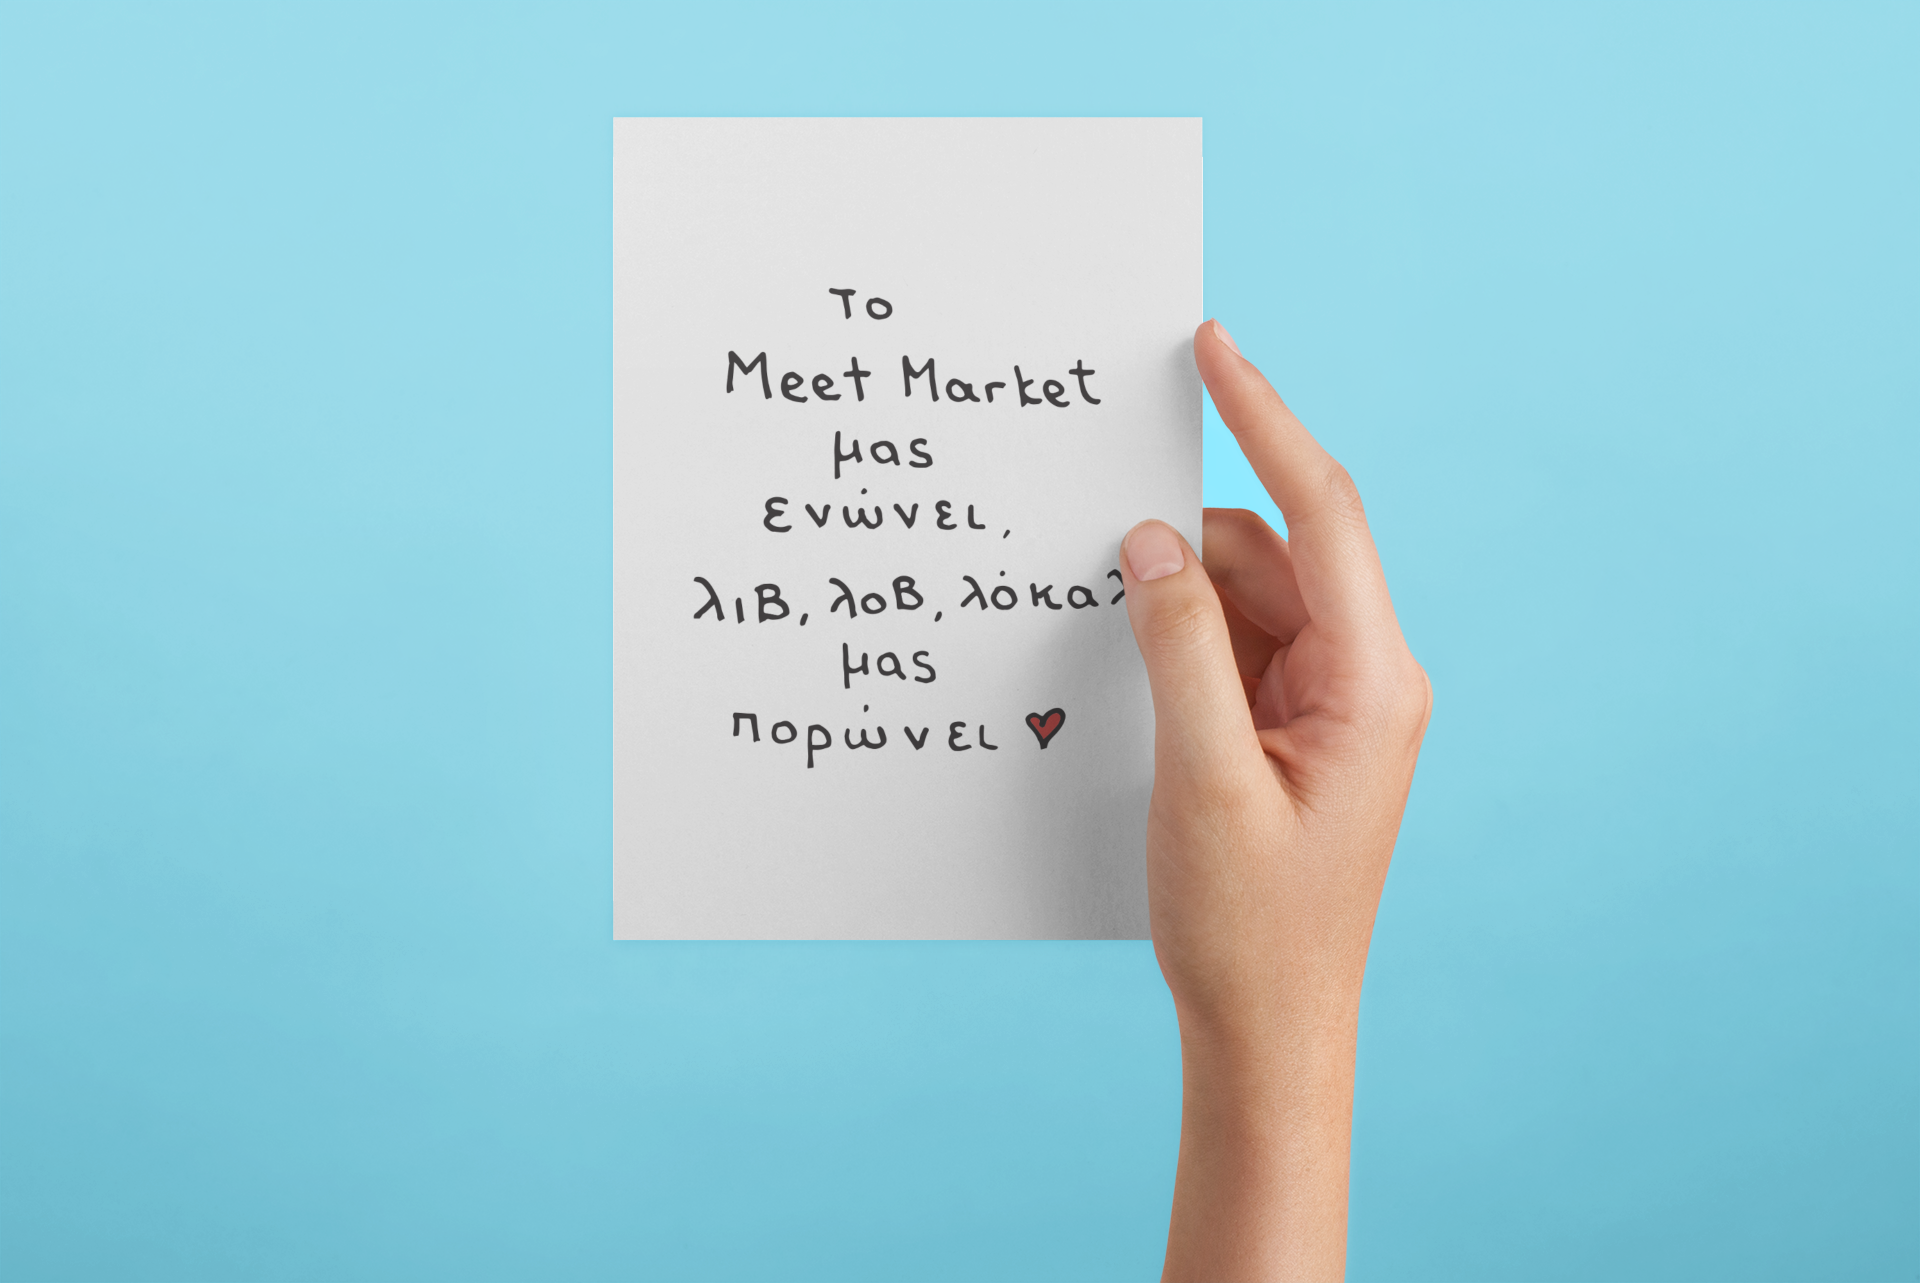 το
Meet Market
μας
ενώνει,
λιβ, λοβ, λόκαλ
μας
πορώνει